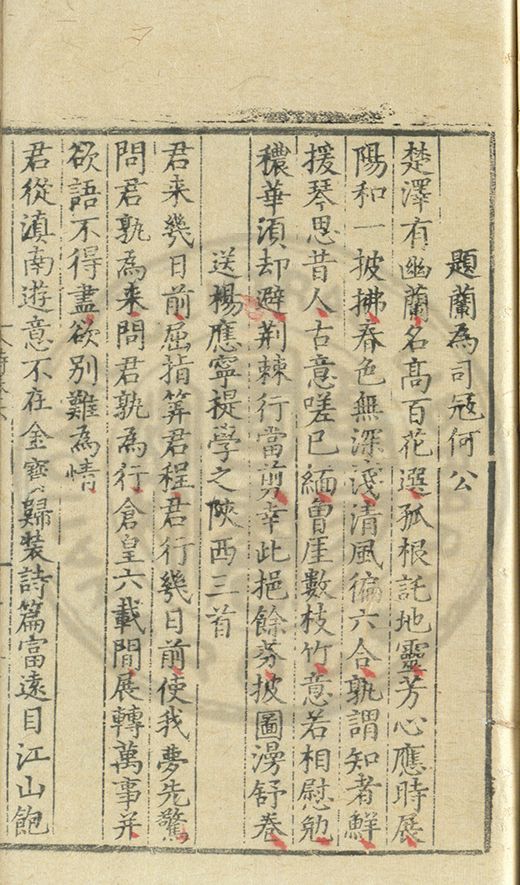 題蘭為司冦何公
楚澤有幽蘭名髙百花選孤根託地靈芳心應時展
陽和一披拂春色無深淺清風徧六合孰謂知者鮮
援琴思昔人古意嗟已緬曾厓數枝竹意若相慰勉
穠華湏却避荆棘行當剪幸此挹餘芬披圖漫舒卷
送楊應寧提學之陝西三首
君来幾日前屈指筭君程君行幾日前使我夢先驚
問君孰為来問君孰為行倉皇六載間展轉萬事并
欲語不得盡欲别難為情
君從滇南遊意不在金寳歸装詩篇富遠目江山飽